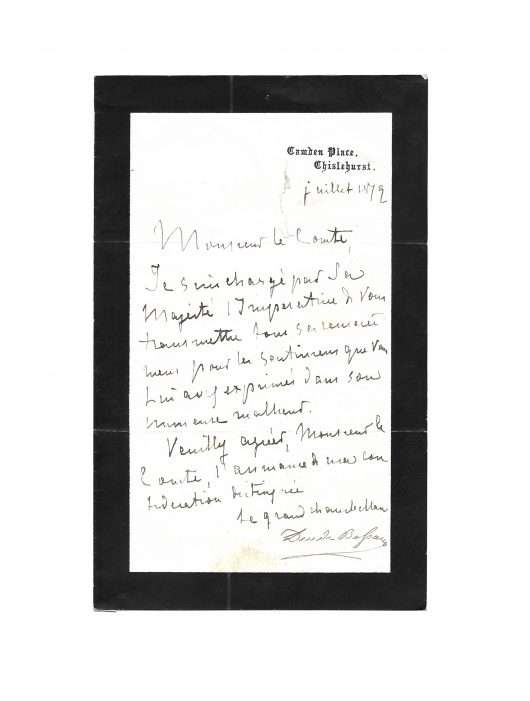 Camden Place,
Chislehurst.
juillet 1879
Monsieur le Comte,
Je suis chargé par Sa
Majesté l'Impératrice de vous
transmettre tous ses remerci
mens pour les sentimens que vous
lui avez exprimés dans son
immense malheur.
Veuillez agréer, Monsieur le
Comte, l'assurance de ma con
sidération distinguée
Le grand chambellan
Duc de Bassano